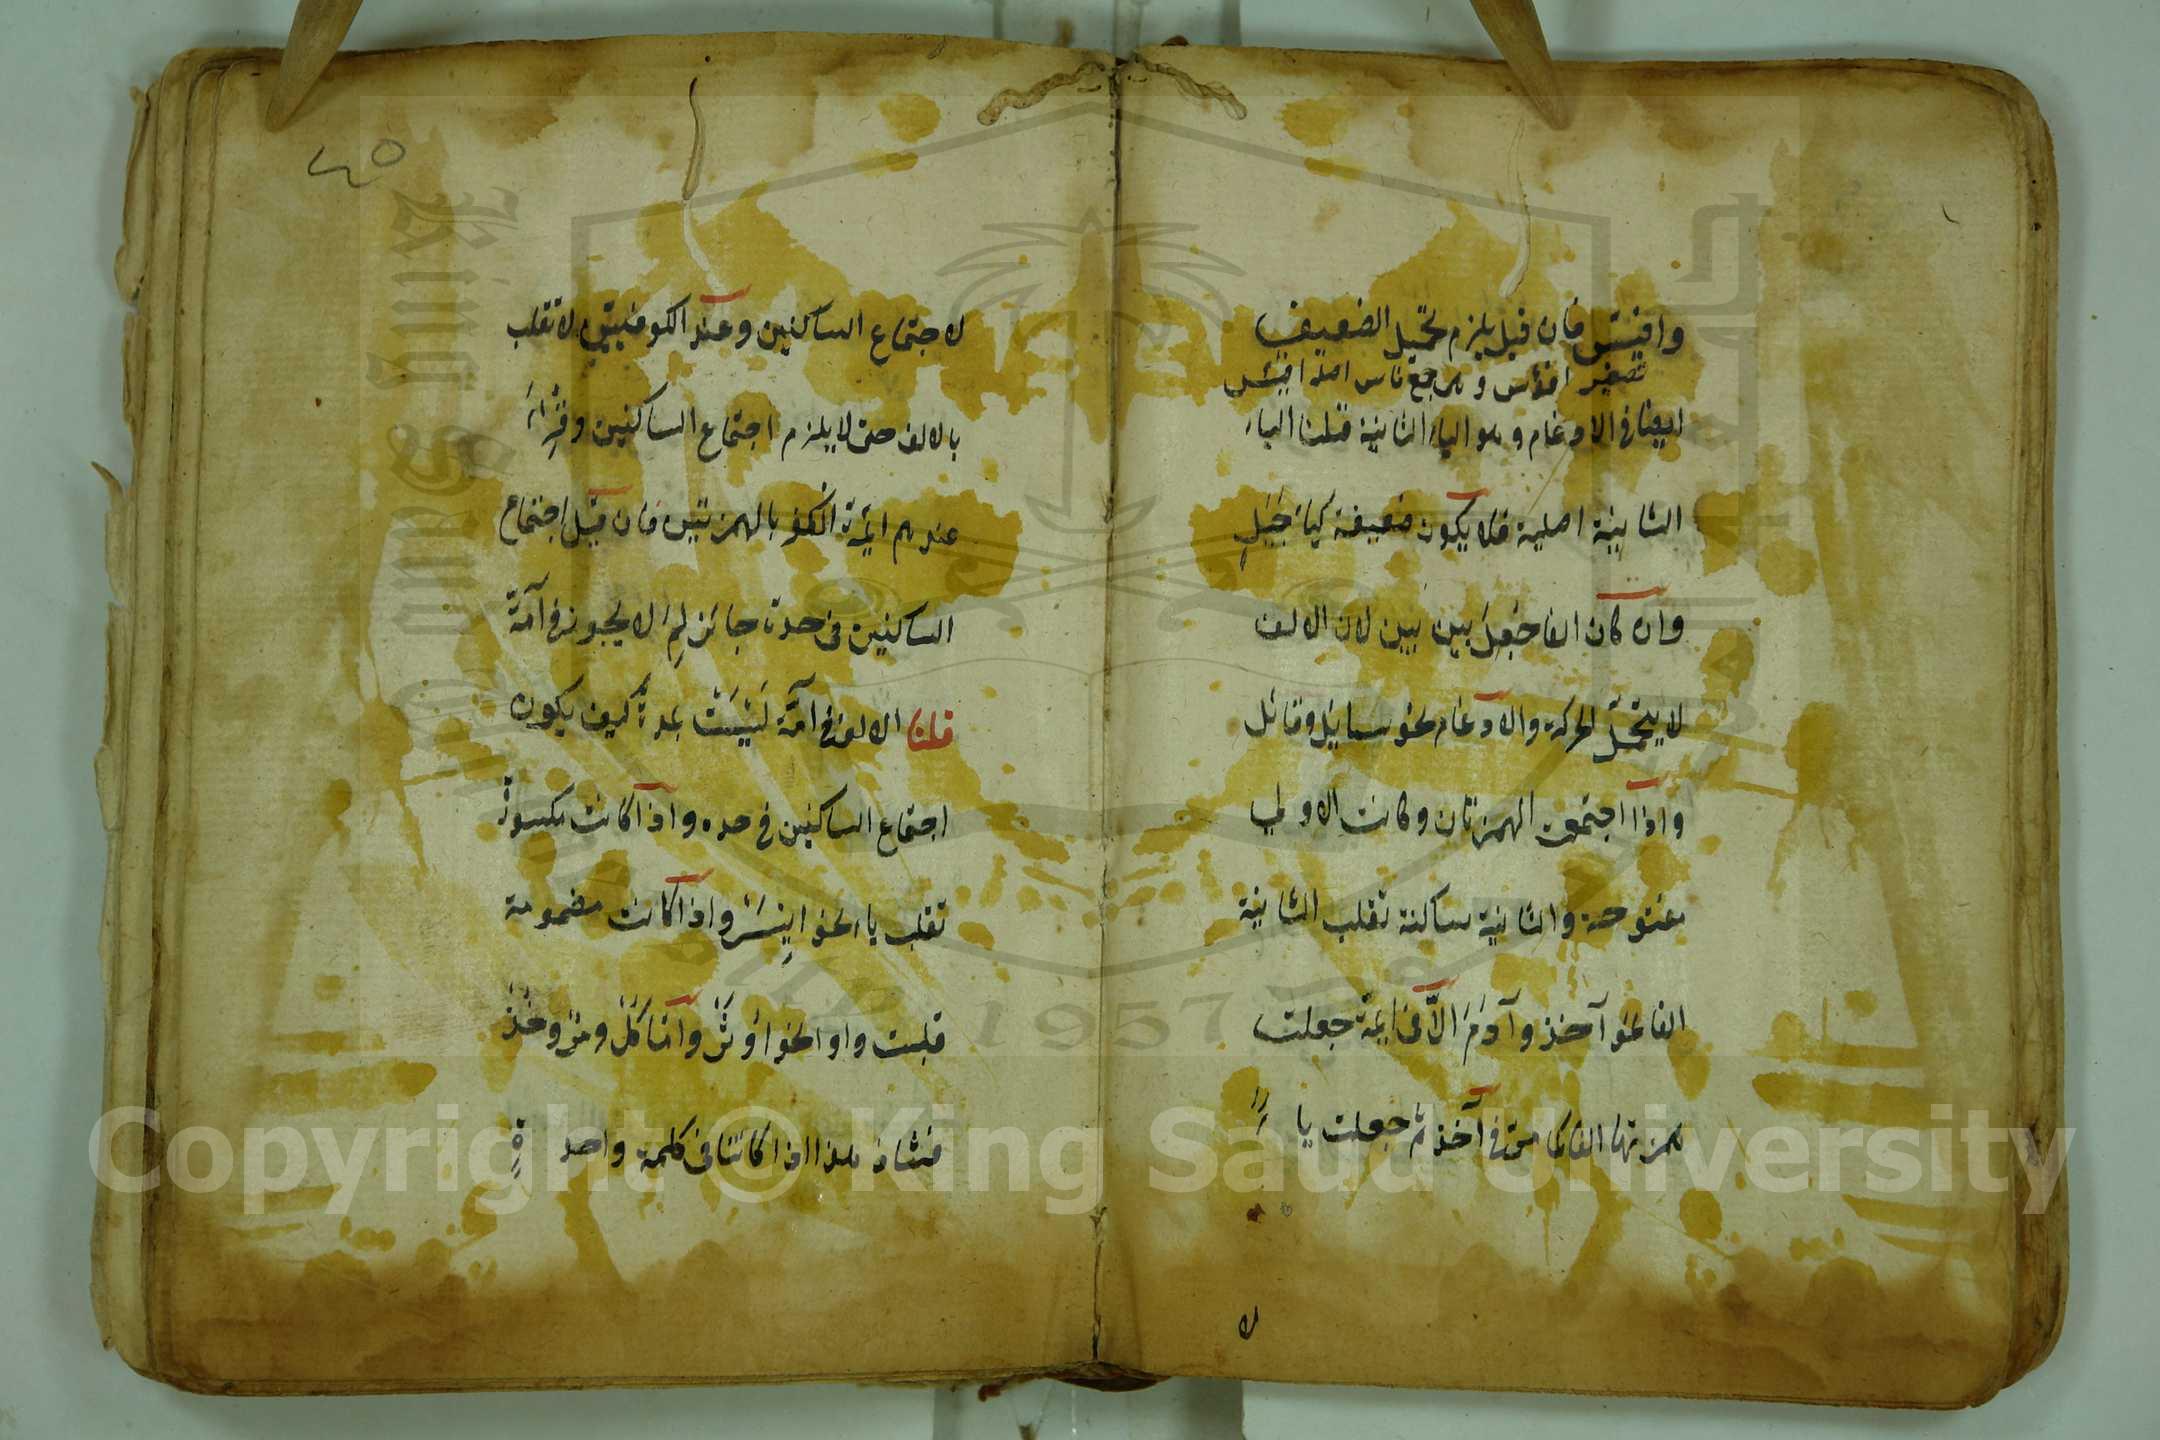 وافيئس فان قيل يلزم تحمّيل الضعيف
تصغير افؤس وهو جمع فاس اصله افيئس
ايضا في الادغام وهو الياء الثانية قلنا الياء
الثانية اصلية فلا يكون ضعيفة كياء جَيَلٍ
وان كان الفا جُعِلَ بين بين لان الالف
لا يتحمّل الحركة والادغام نحو سايل وقائل
واذا اجتمعت الهمزتان وكانت الاولي
مفتوحة والثانية ساكنة تقلب الثانية
الفا نحو آخذ وآدم الاّ في ايمّة جعلت
همزتها الفا كما مرّ في آخذ ثمّ جعلت يا
لا
٤٥
لاجتماع الساكنين وعند الكوفيّين لا تقلب
بالالف حتى لا يلزم اجتماع الساكنين وقُرِأَ
عندهم ايمّة الكفر بالهمزتين فان قيل اجتماع
الساكنين في حدة جائز لِمَ لا يجوز في آمّة
قلنا الالف في آمّة لَيْسَتْ بمدةٍ كيف يكون
اجتماع الساكنين في حده واذا كانت مكسورة
تقلب ياء نحو اِيْسَرْ واذا كانت مضمومة
قلبت واوا نحو اوثر وامّا كُلْ ومُرْ وخُذْ
فشاذ هذا اذا كانتا في كلمة واحدة
Copyright © King Saud University
King Saud University
1957